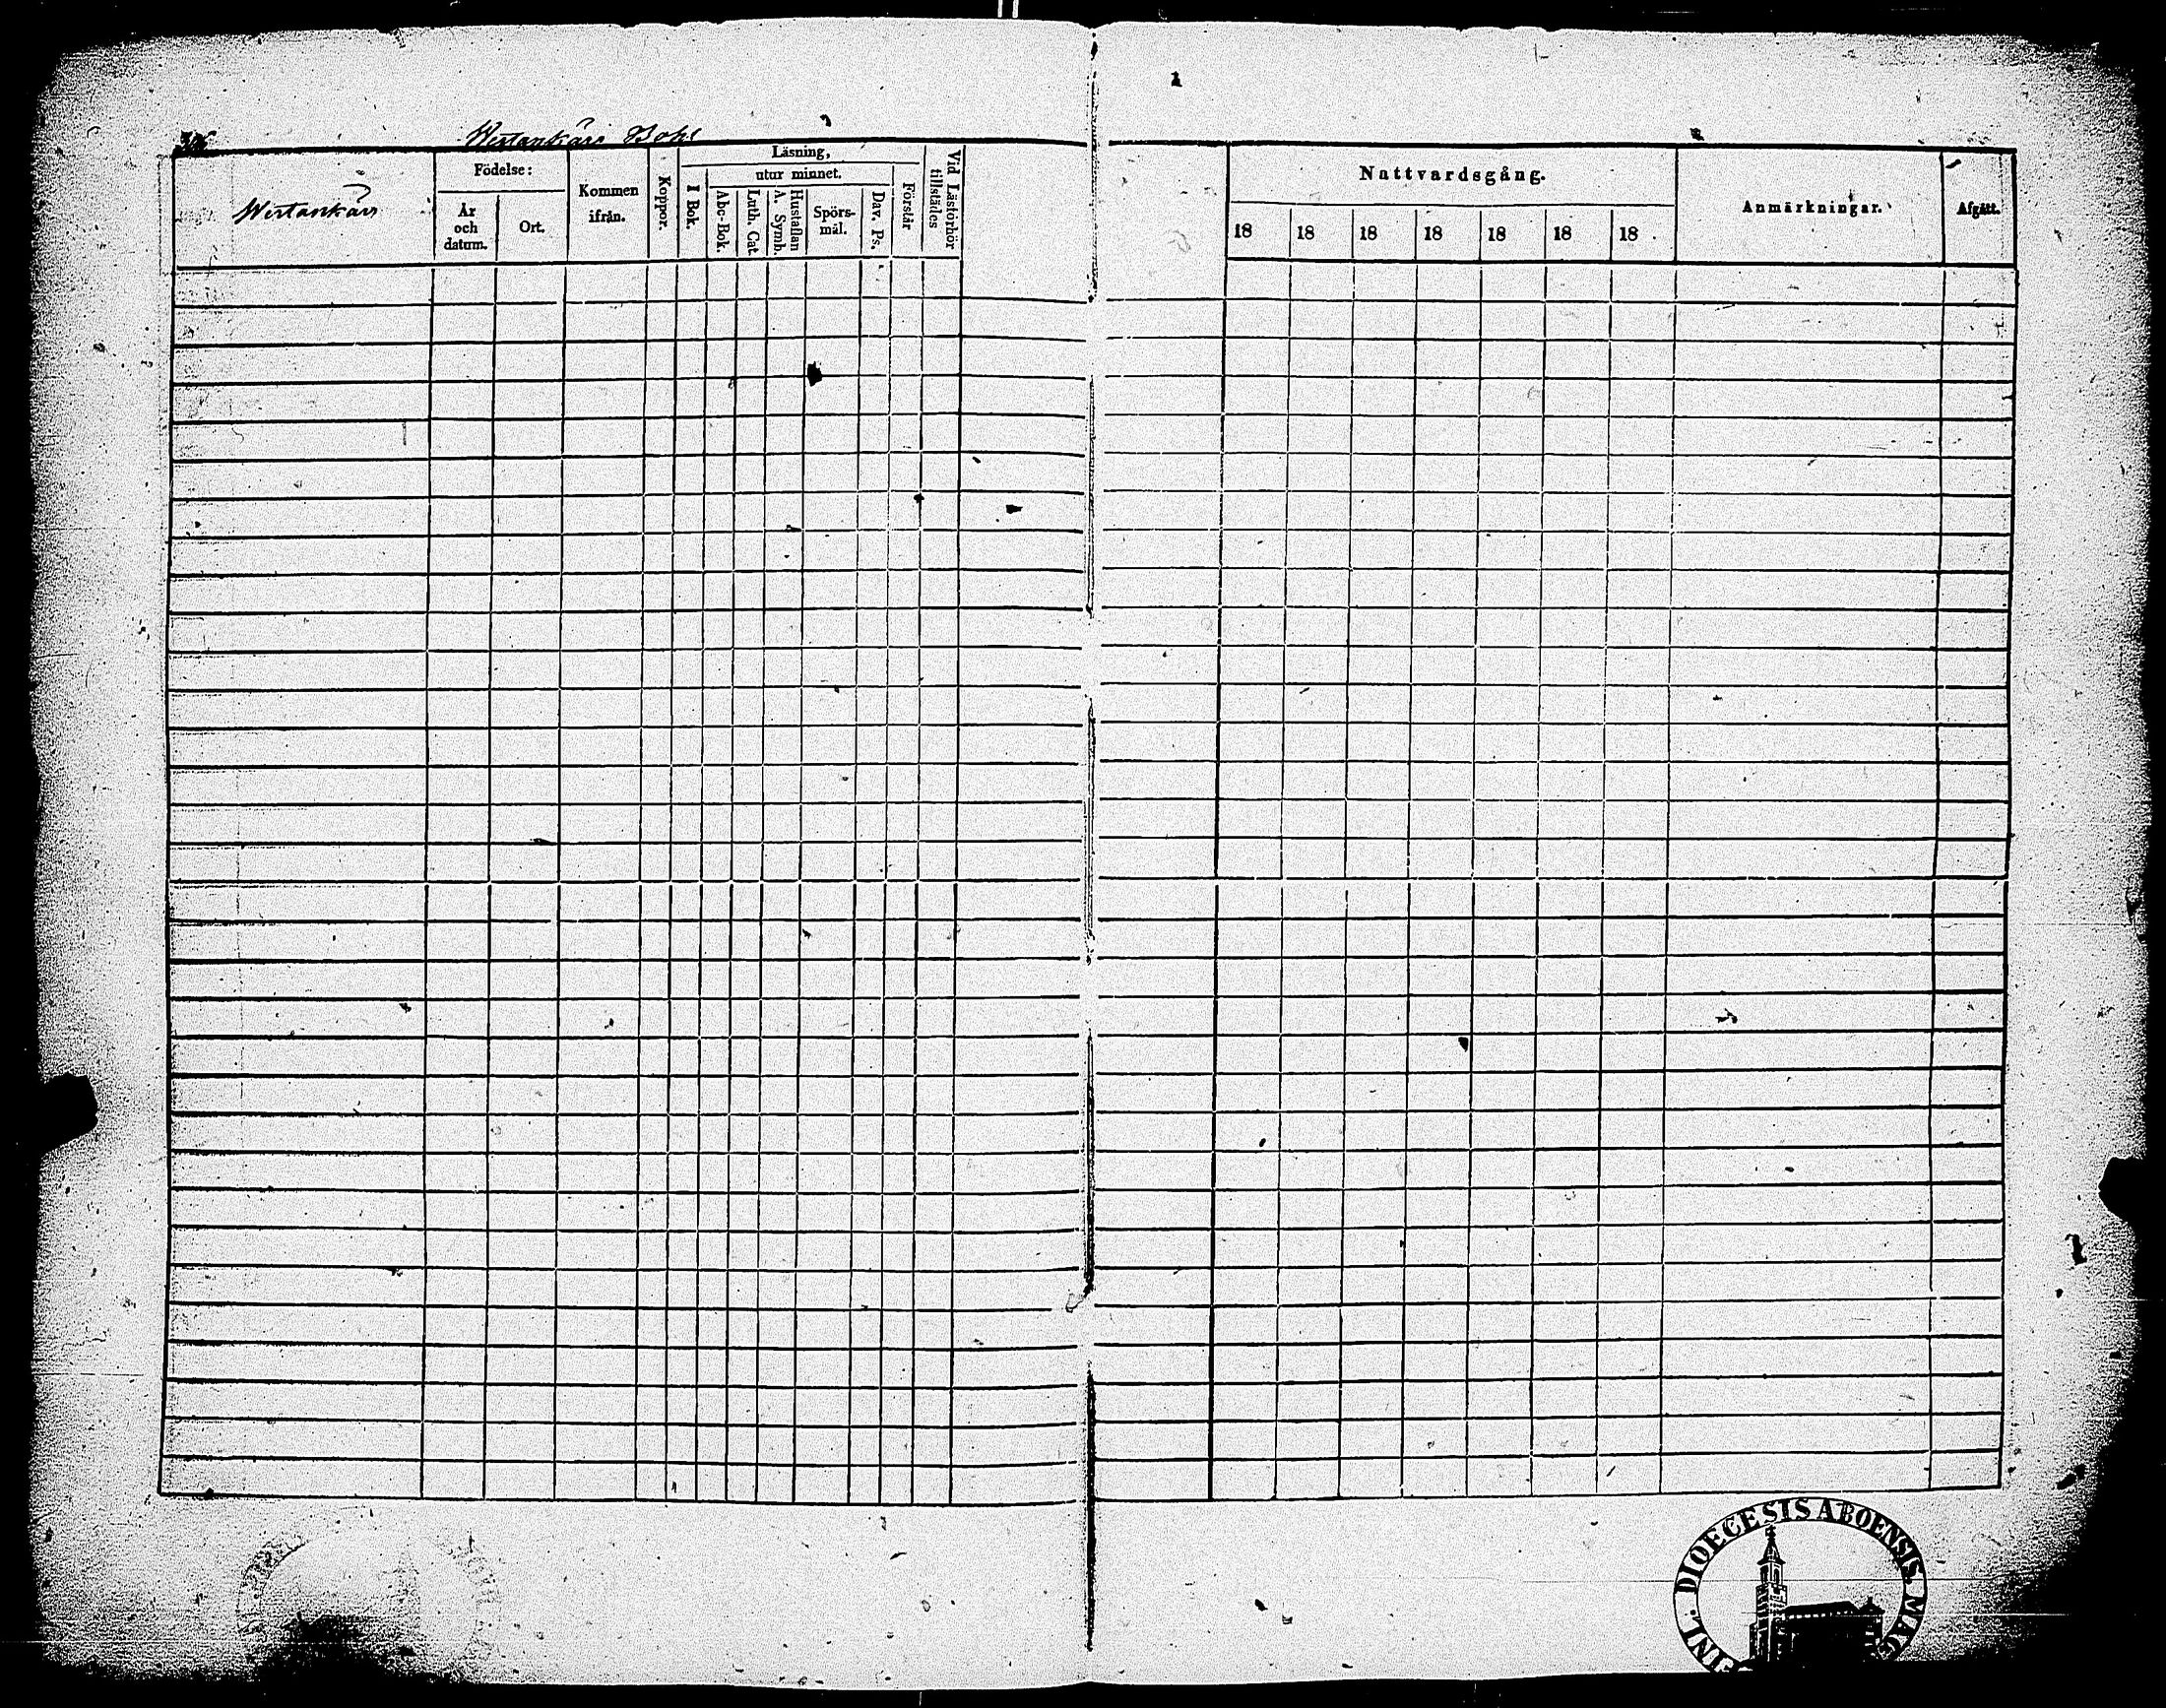 Westankärs Bohl
Westankärs
Födelse:
År och datum.
Ort.
Kommen ifrån.
Koppor.
Läsning,
I Bok.
utur minnet.
Abc-Bok.
Luth. Cat.
Hustaflan A. Symb.
Spörsmål.
Dav. Ps.
Förstår
Vid Läsförhör tillstädes
Nattvardsgång.
18 18 18 18 18 18 18
Anmärkningar.
Afgått.
DIOECESIS ABOENSIS